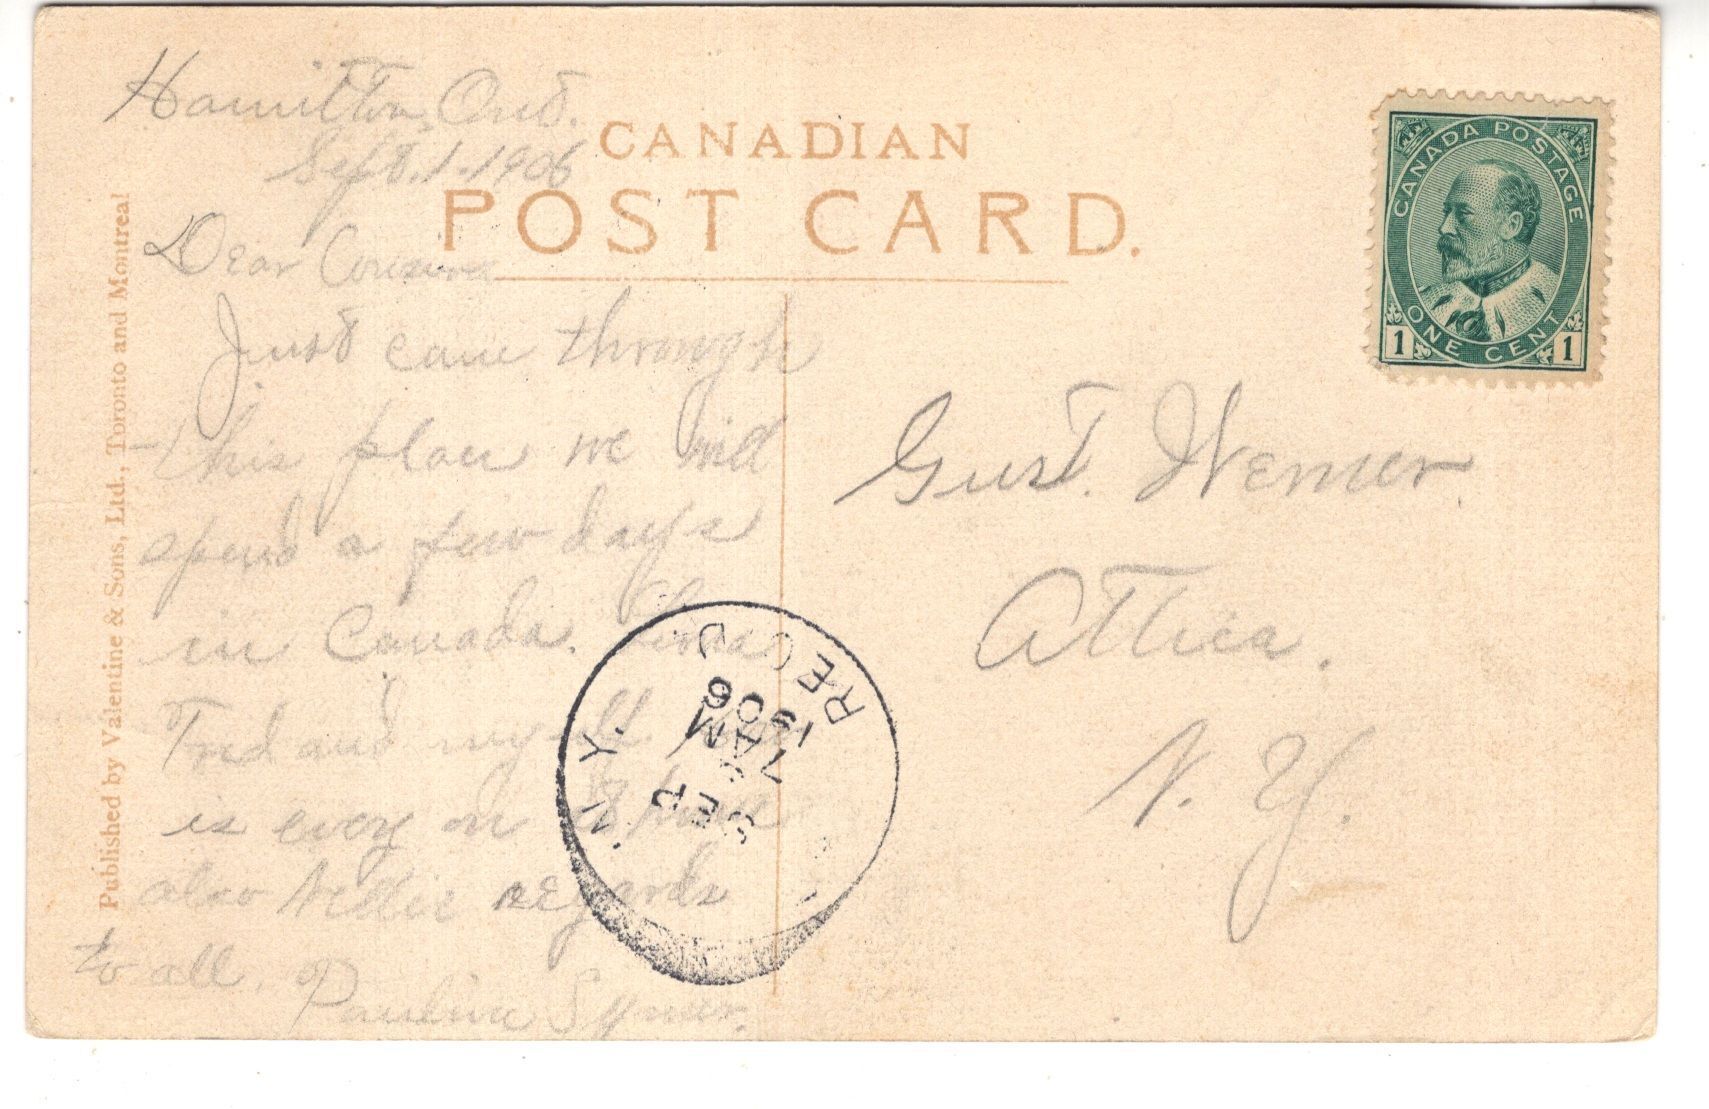 Hamilton, Ont.
Sept. 1. 1906
CANADIAN
POST CARD.
Dear Cousins
Just came through
this place we will
spend a few days
in Canada.
Fred and myself
is
also Nellie regards
to all.
Pauline
Gust. Wemer
Attica.
N. Y.
CANADA POSTAGE
ONE CENT
1 1
N. Y. REC'D.
SEP
7 AM
1906
Published by Valentine & Sons, Ltd., Toronto and Montreal